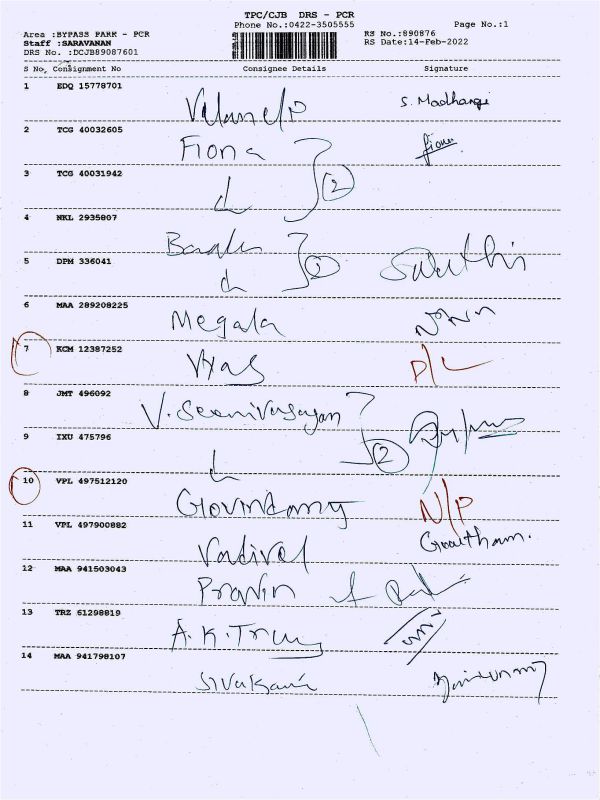 TPC/CJB DRS - PCR
Phone No.:0422-3505555 Page No.:1
Area :BYPASS PARK - PCR RS No.:890876
Staff :SARAVANAN RS Date:14-Feb-2022
DRS No. :DCJB89087601
S No, Consignment No Consignee Details Signature
1 EDQ 15778701 S. Madhangi
2 TCG 40032605 Fiona fiona
3 TCG 40031942 2
4 NKL 2935807
5 DPM 336041
6 MAA 289208225 Megala
7 KCM 12387252 Vyas D/L
8 JMT 496092 V. Seenivasagan
9 IXU 475796 2
10 VPL 497512120 N/P
11 VPL 497900882 Vadivel Gowtham.
12 MAA 941503043 Pravin
13 TRZ 61298819 A.K.
14 MAA 941798107